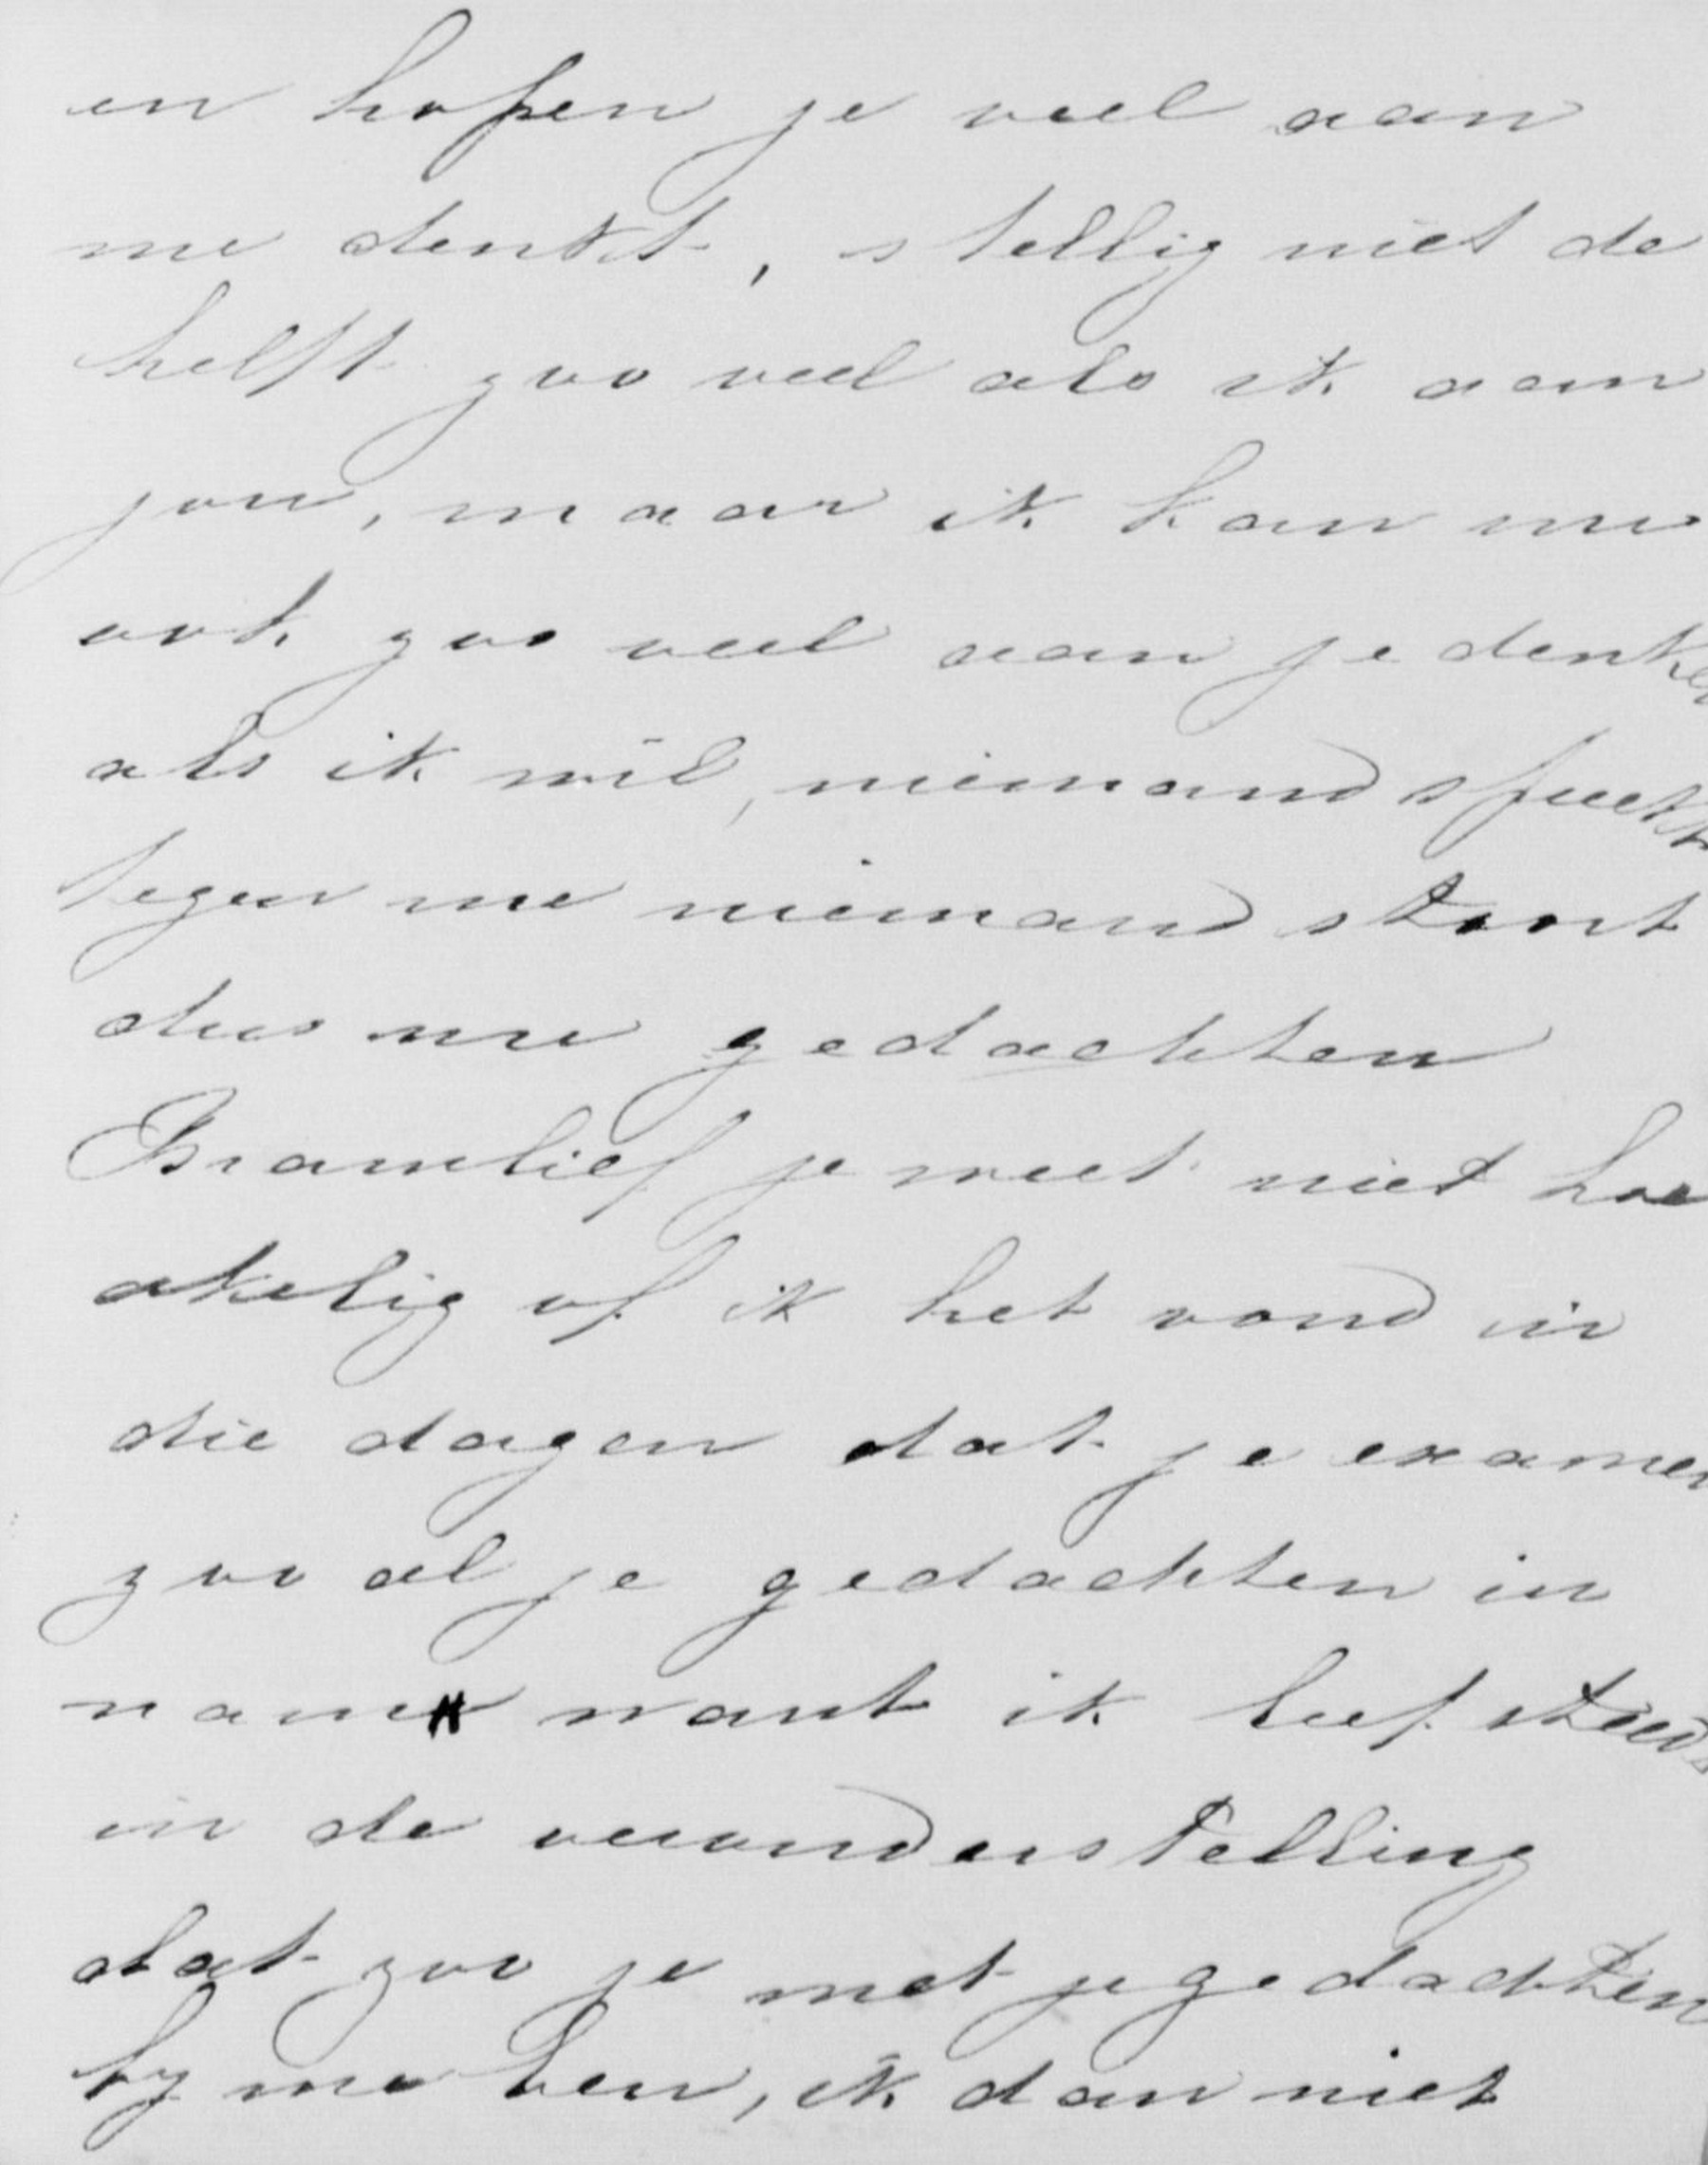 en hopen je veel aan
me denkt, stellig niet de
helft zoo veel als ik aan
jou, maar ik kan me
ook zoo veel aan je denken
als ik wil, niemand spreekt
tegen me niemand stoort
dus me gedachten
Bramlief je weet niet hoe
akelig of ik het vond in
die dagen dat je examen
zoo al je gedachten in
nam want ik leef steeds
in de veronderstelling
dat zoo je met je gedachten
by me ben, ik dan niet